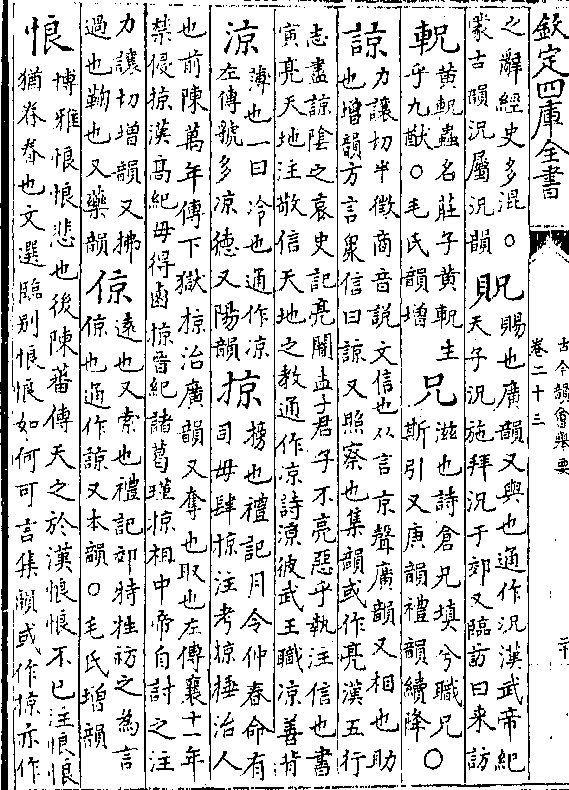 欽定四庫全書
古今韻會舉要
卷二十三
二十
之辭經史多混○
蒙古韻況屬況韻
貺
賜也廣韻又與也通作況漢武帝紀
天子況施拜況于郊又臨訪曰來訪
軦
黃軦蟲名莊子黃軦生
乎九猷○毛氏韻增
兄
滋也詩倉兄填兮職兄○
斯引又庚韻禮韻續降
諒
力讓切半徵商音說文信也从言京聲廣韻又相也助
也增韻方言衆信曰諒又照察也集韻或作亮漢五行
志盡諒陰之哀史記亮闇孟子君子不亮惡乎執注信也書
寅亮天地注敬信天地之教通作涼詩涼彼武王職涼善背
涼
薄也一曰冷也通作凉
左傳號多凉德又陽韻
掠
搒也禮記月令仲春命有
司毋肆掠注考掠捶治人
也前陳萬年傳下獄掠治廣韻又奪也取也左傳襄十一年
禁侵掠漢高紀毋得鹵掠晉紀諸葛瑾掠柤中帝自討之注
力讓切增韻又拂
過也勒也又藥韻
倞
遠也又索也禮記郊特牲祊之為言
倞也通作諒又本韻○毛氏增韻
悢
博雅悢悢悲也後陳蕃傳天之於漢悢悢不已注悢悢
猶眷眷也文選臨别悢悢如何可言集韻或作掠亦作